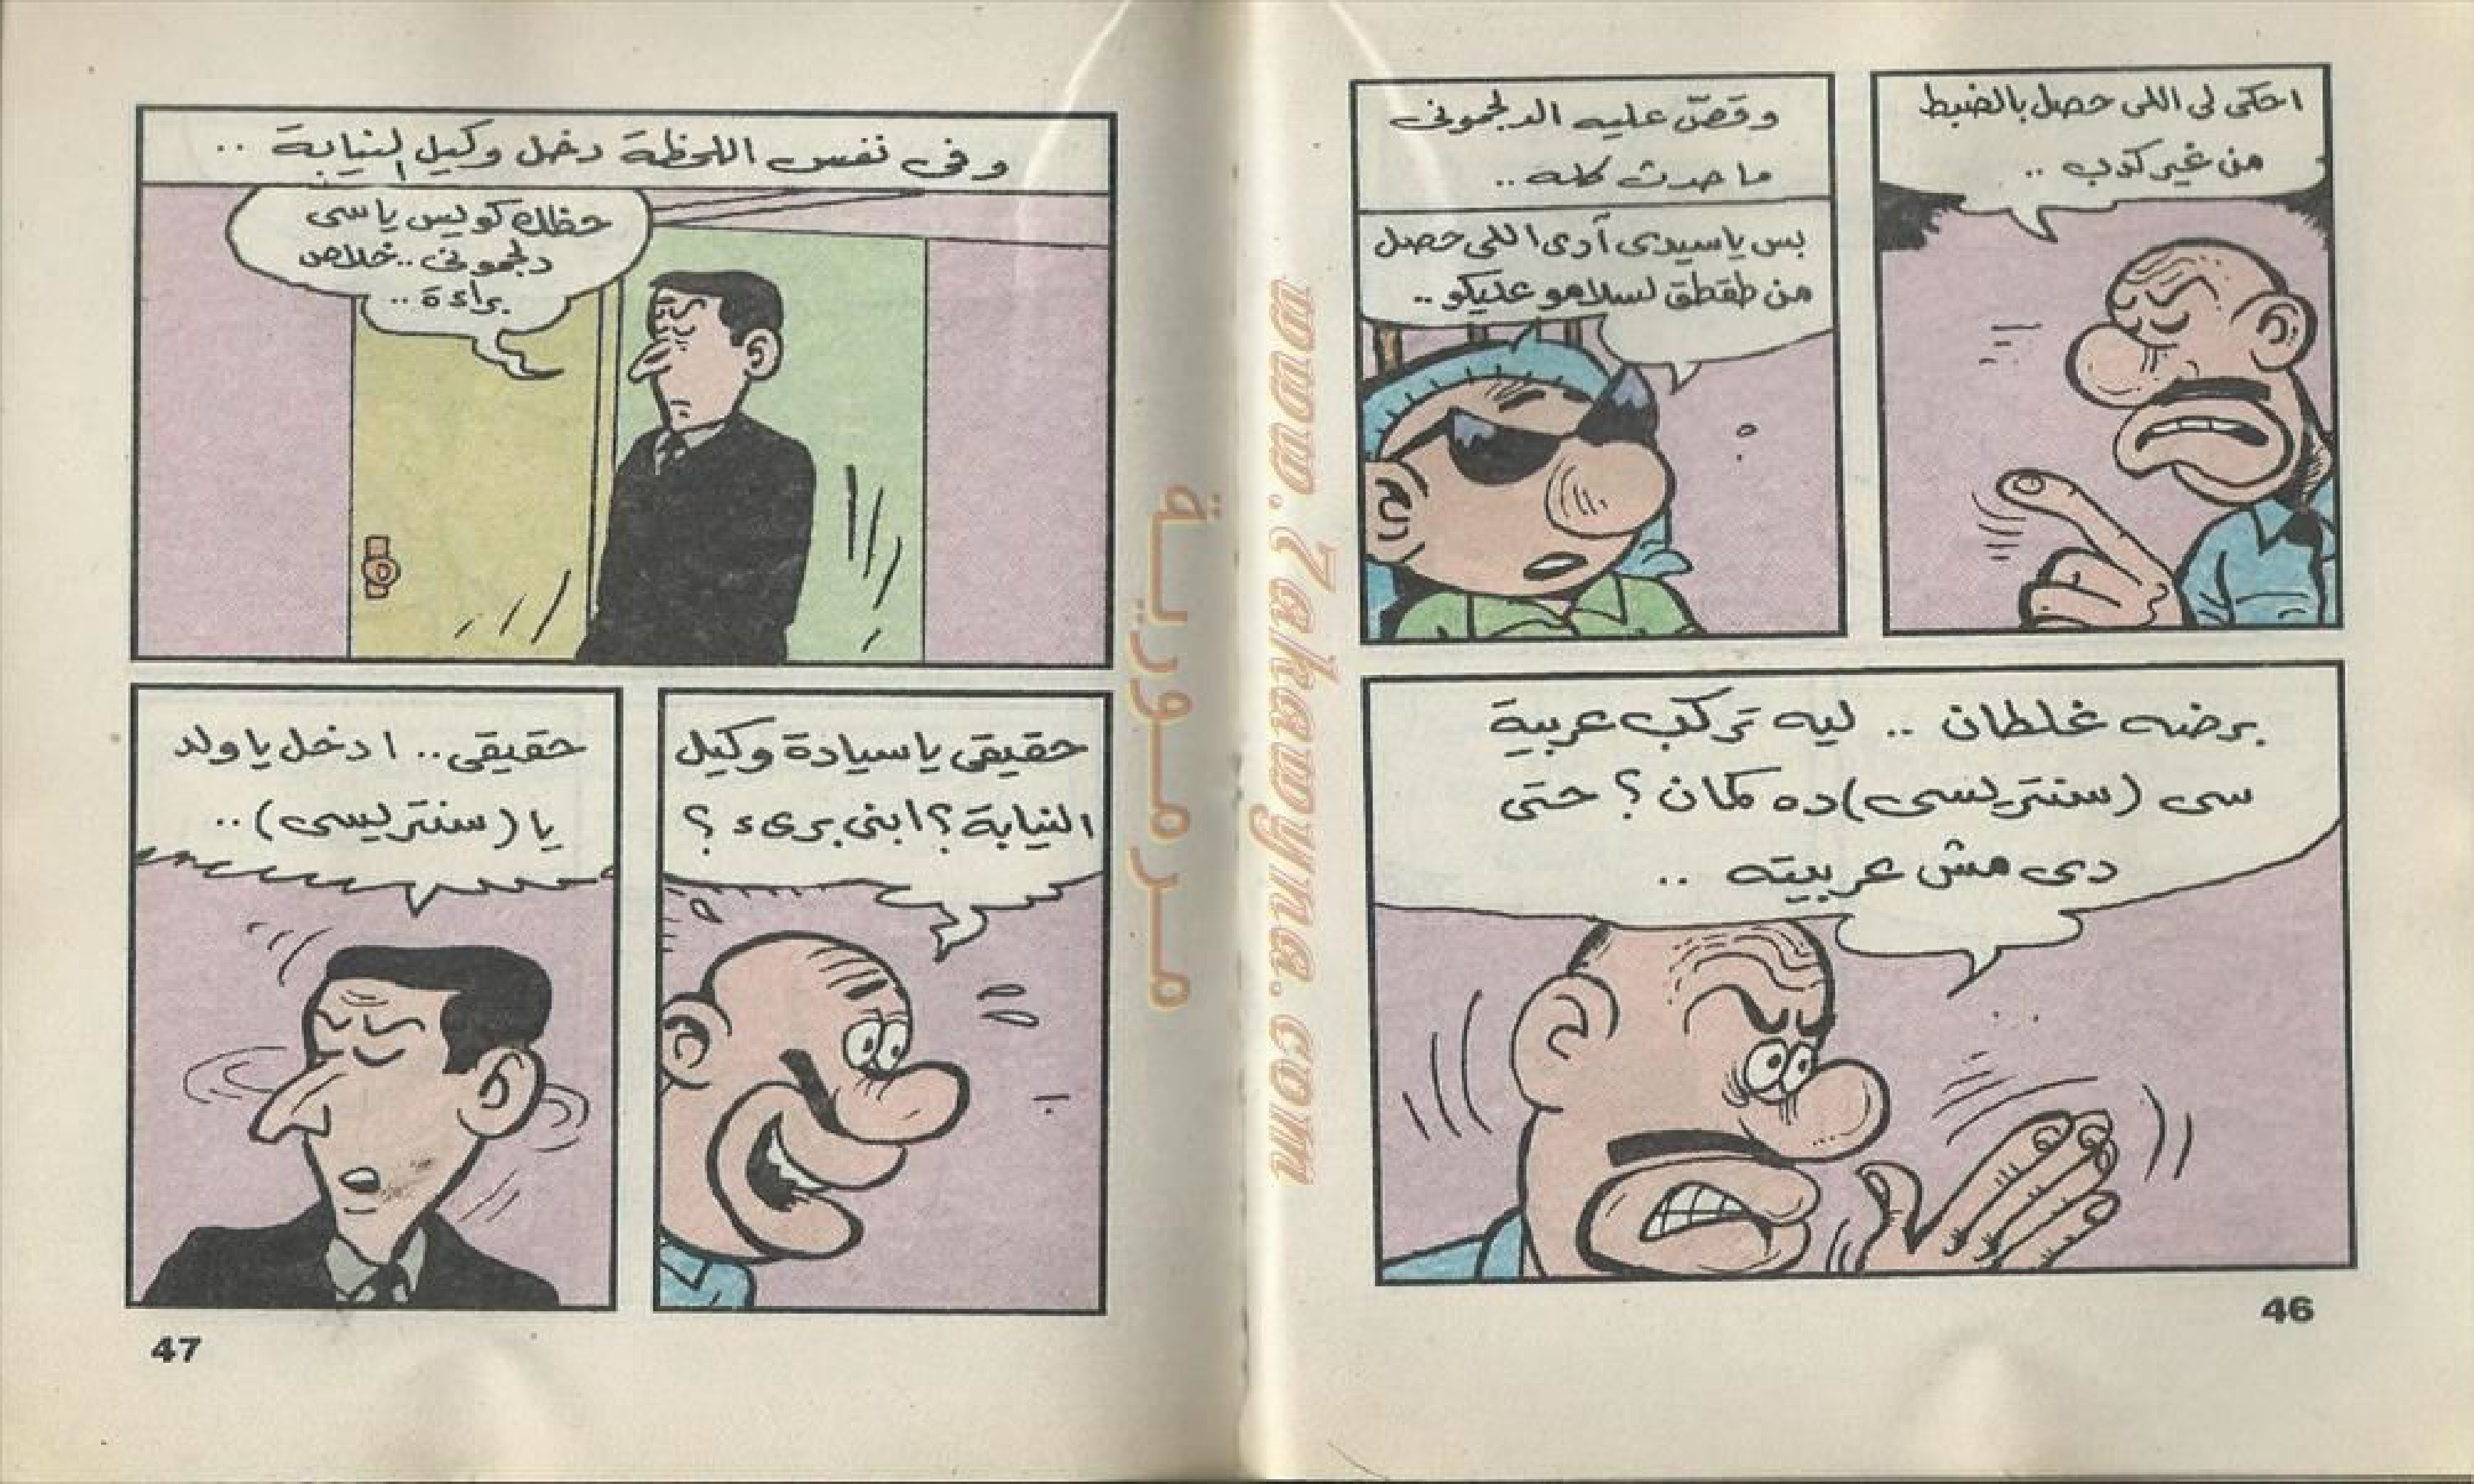 احكى لى اللى حصل بالضبط
من غير كدب ..
وقصّ عليه الدلجمونى
ما حدث كله ..
بس ياسيدى آدى اللى حصل
من طقطق لسلامو عليكو ..
برضه غلطان .. ليه تركب عربية
سى (سنتريسى) ده كمان ؟ حتى
دى مش عربيته ..
46
وفى نفس اللحظة دخل وكيل النيابة ..
حظك كويس ياسى
دلجمونى .. خلاص
براءة ..
حقيقى ياسيادة وكيل
النيابة ؟ ابنى برىء ؟
حقيقى .. ادخل ياولد
يا (سنتريسى) ..
47
مرمورية
www.7akawyna.com